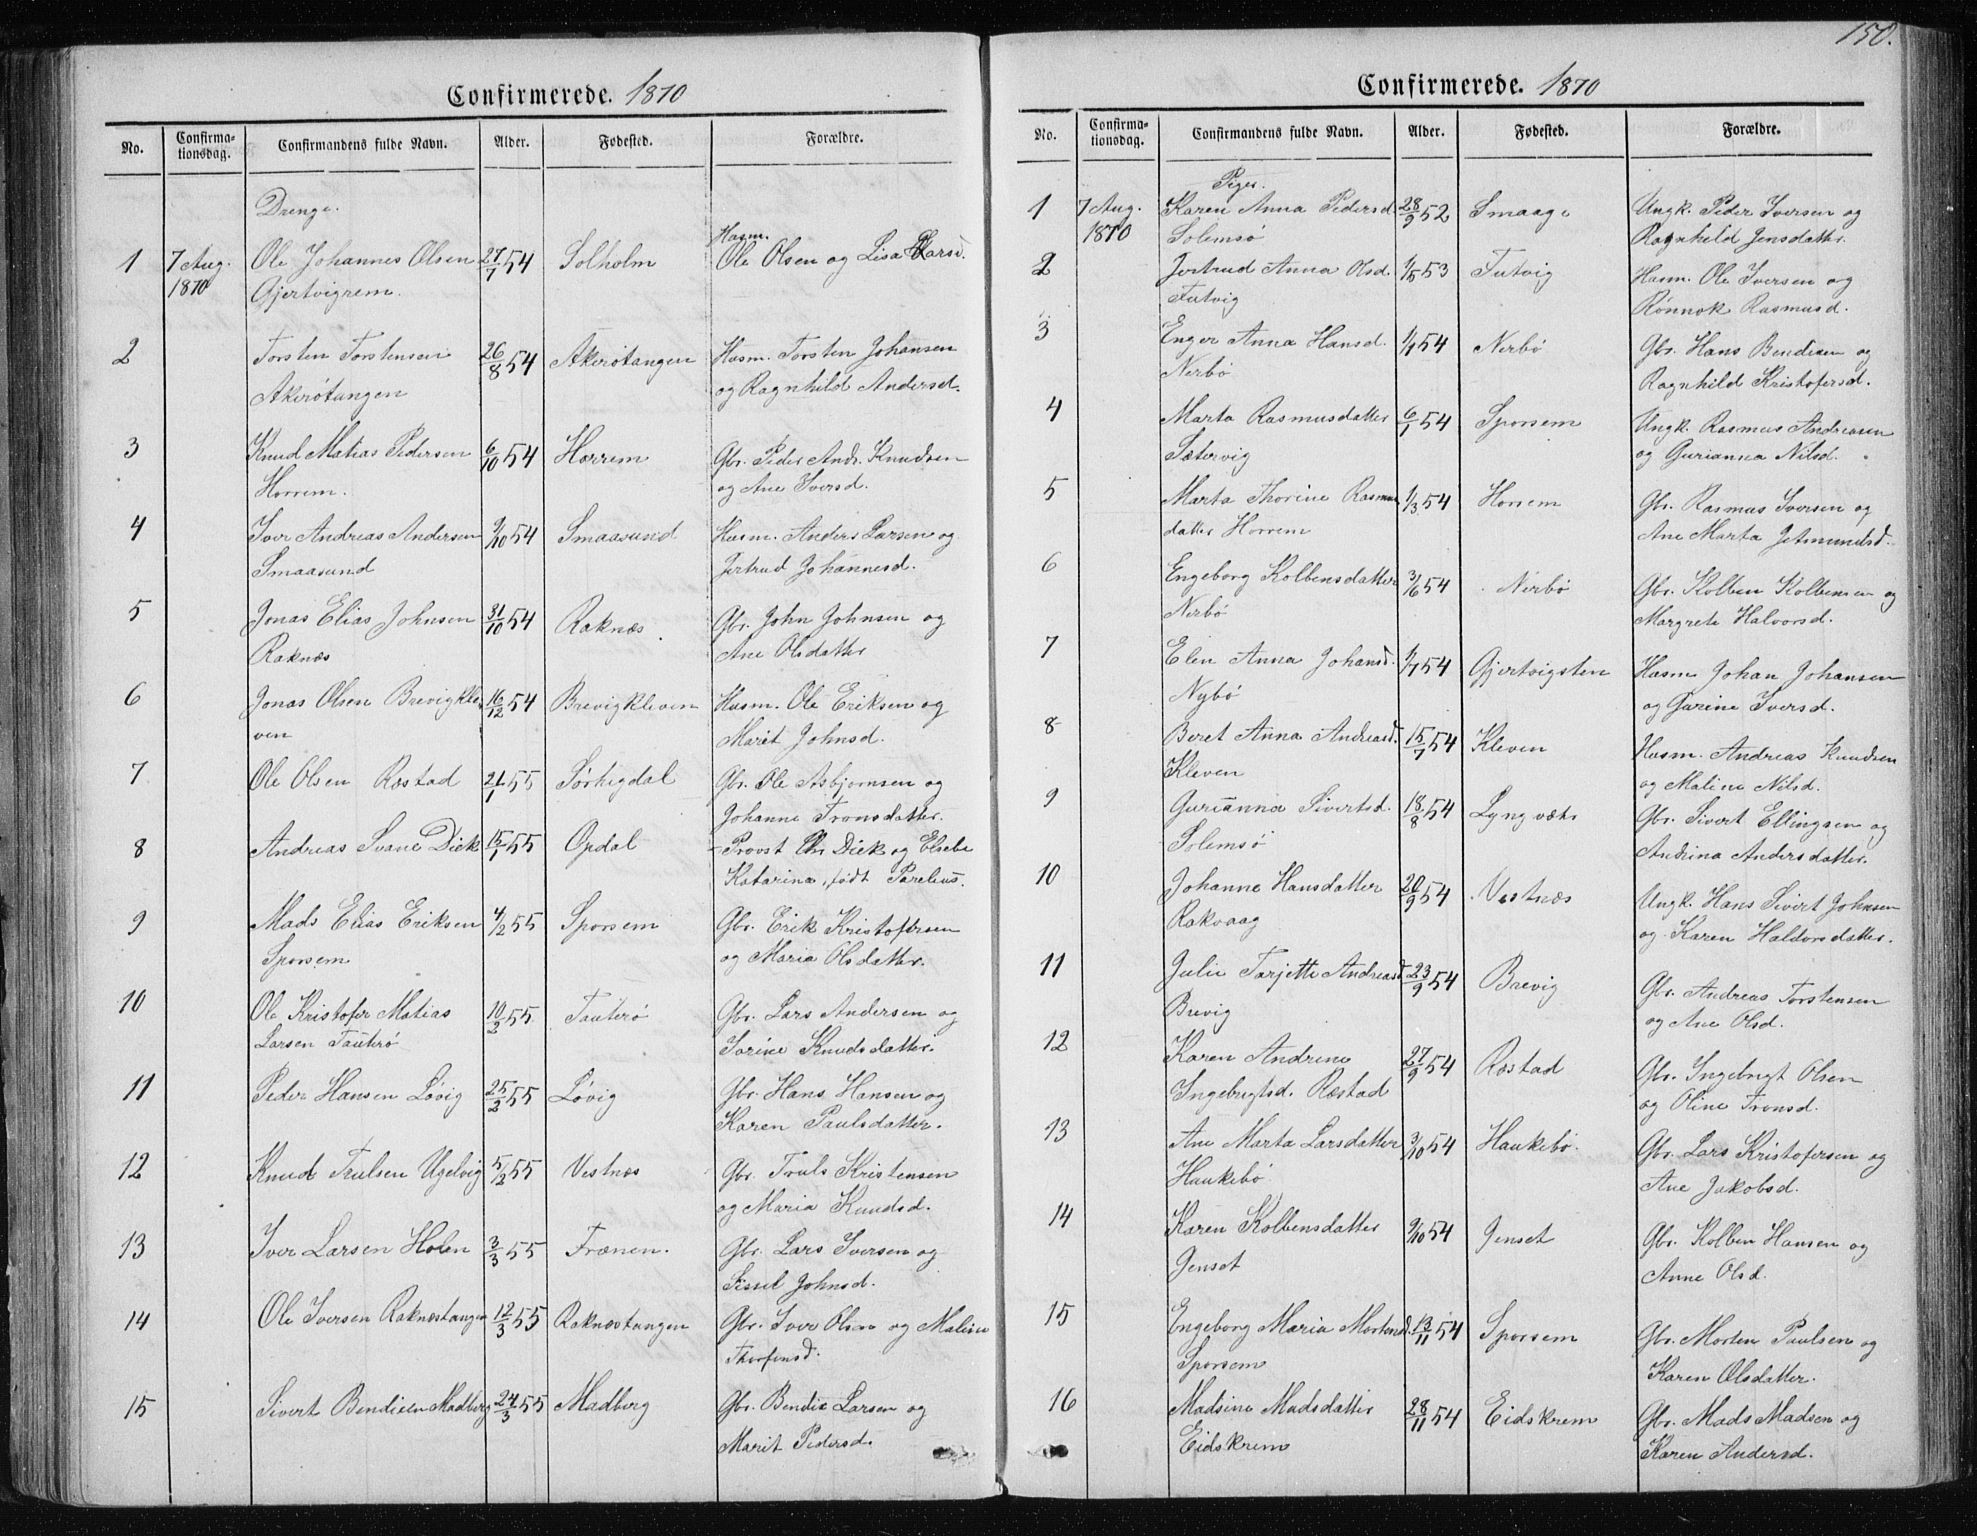 Confirmerede. 1870
No. Confirma- Confirmandens fulde Navn. Alder. Fødested. Forældre.
tionsdag.
Drenge.
Husm.
1 7 Aug. Ole Johannes Olsen 27/7 54 Solholm Ole Olsen og Lisa Larsd.
1870 Gjertvigrem.
2 Torsten Torstensen 26/8 54 Akerøtangen Husm. Torsten Johansen
Akerøtangen og Ragnhild Andersd.
3 Knud Matias Pedersen 6/10 54 Horrem Gbr. Peder Andr. Knudsen
Horrem. og Ane Iversd.
4 Iver Andreas Andersen 9/10 54 Smaasund Husm. Anders Larsen og
Smaasund Jertrud Johannesd.
5 Jonas Elias Johnsen 31/10 54 Raknæs. Gbr. John Johnsen og
Raknæs Ane Olsdatter
6 Jonas Olsen Brevigkle 16/12 54 Brevigkleven Husm. Ole Eriksen og
ven Marit Johnsd.
7 Ole Olsen Røstad 21/1 55 Sørhigdal Gbr. Ole Asbjørnsen og
Johanne Tronsdatter.
8 Andreas Svane Dick 15/1 55 Opdal Provst Chr Dick og Elsebe
Katarina, født Parelius.
9 Mads Elias Eriksen 4/2 55 Sporsem Gbr. Erik Kristofersen
Sporsem og Maria Olsdatter.
10 Ole Kristofer Matias 10/2 55 Tauterø Gbr. Lars Andersen og
Larsen Tautrø Sorine Knudsdatter.
11 Peder Hansen Løvig 25/2 55 Løvig Gbr. Hans Hansen og
Karen Paulsdatter.
12 Knud Trulsen Ugelvig 5/3 55 Vestnæs Gbr. Truls Kristensen
og Maria Knudsd.
13 Iver Larsen Holen 3/3 55 Frænen. Gbr. Lars Iversen og
Sissel Johnsd.
14 Ole Iversen Raknæstangen 12/3 55 Raknæstangen Gbr. Iver Olsen og Maline
Thorfinsd.
15 Sivert Bendixen Madberg 24/3 55 Madberg Gbr. Bendix Larsen og
Marit Pedersd.
150.
Confirmerede. 1870
No. Confirma- Confirmandens fulde Navn. Alder. Fødested. Forældre.
tionsdag.
Piger.
1 7 Aug. Karen Anna Pedersd. 28/9 52 Smaage Ungk. Peder Iversen og
1870 Solemsø Ragnhild Jensdatter.
2 Jertrud Anna Olsd. 1/5 53 Tutvig Husm. Ole Iversen og
Tutvig Rønnok Rasmusd.
3 Enger Anna Hansd. 1/1 54 Nerbø Gbr. Hans Bendixen og
Nerbø Ragnhild Kristofersd.
4 Marta Rasmusdatter 6/1 54 Sporsem Ungk. Rasmus Andreasen
Sætervig og Gurianna Nilsd.
5 Marta Thorine Rasmus 1/3 54 Horrem Gbr. Rasmus Iversen og
datter Horrem Ane Marta Jetmundsd.
6 Engeborg Kolbensdatter 3/6 54 Nerbø Gbr. Kolben Kolbensen og
Nerbø Margrete Halvorsd.
7 Elen Anna Johansd. 1/7 54 Gjertvigsten Husm Johan Johansen
Nybø og Gurine Iversd.
8 Beret Anna Andreasd. 15/7 54 Kleven Husm. Andreas Knudsen
Kleven og Maline Nilsd.
9 Gurianna Sivertsd. 18/8 54 Lyngvæhr Gbr. Sivert Ellingsen og
Solemsø Andrina Andersdatter.
10 Johanne Hansdatter 20/9 54 Vestnæs Ungk. Hans Sivert Johnsen
Rakvaag og Karen Haldorsdatter.
11 Julie Tarjette Andreasd 23/9 54 Brevig Gbr. Andreas Torstensen
Brevig og Ane Olsd.
12 Karen Andrine 27/9 54 Røstad Gbr. Ingebrigt Olsen
Ingebrigtsd. Røstad og Oline Tronsd.
13 Ane Marta Larsdatter 3/10 54 Haukebø. Gbr. Lars Kristofersen og
Haukebø Ane Jakobsd.
14 Karen Kolbensdatter 9/10 54 Jenset Gbr. Kolben Hansen og
Jenset Anne Olsd.
15 Engeborg Maria Mortensd. 13/11 54 Sporsem Gbr. Morten Paulsen og
Sporsem Karen Olsdatter.
16 Madsine Madsdatter 28/11 54 Eidskrem Gbr. Mads Madsen og
Eidskrem Karen Andersd.